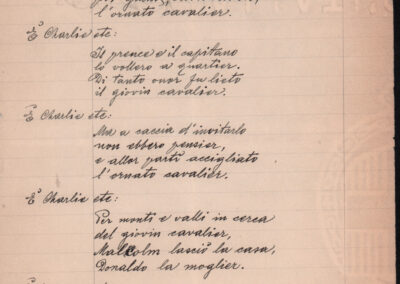 l'ornato cavalier.
E' Charlie etc:
Il prence e il capitano
lo vollero a quartier.
Di tanto onor fu lieto
il giovin cavalier.
E' Charlie etc:
Ma a caccia d'invitarlo
non ebbero pensier,
e allor partì accigliato
l'ornato cavalier.
E' Charlie etc:
Per monti e valli in cerca
del giovin cavalier,
Malcolm lasciò la casa,
Donaldo la moglier.